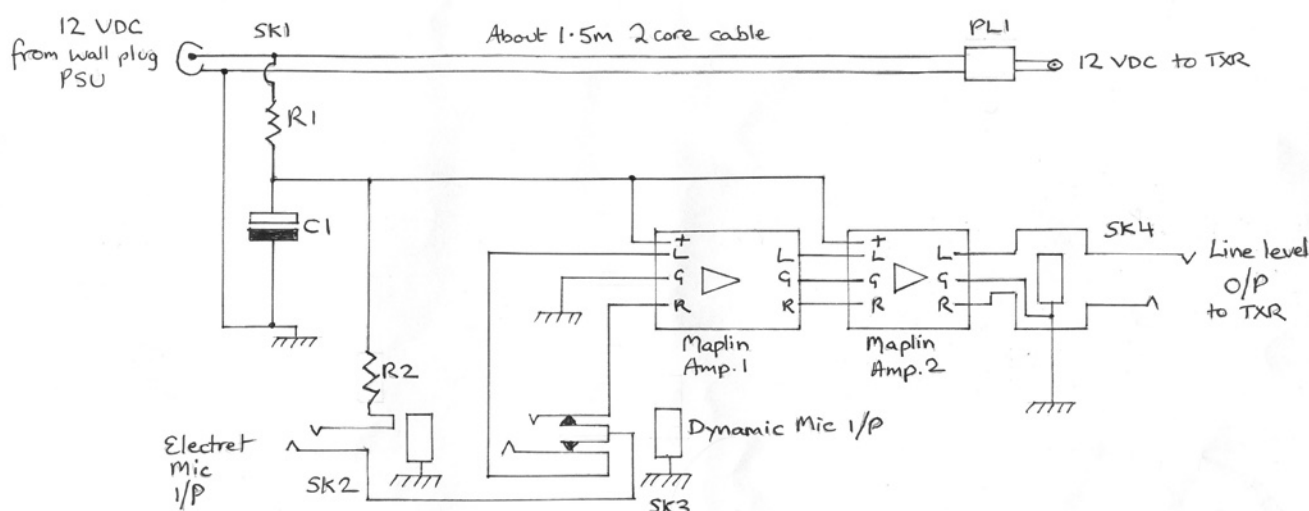 12 VDC
from wall plug
PSU
SK1
About 1.5m 2 core cable
PL1
12 VDC to TXR
R1
C1
R2
+
L
G
R
L
G
R
Maplin
Amp.1
+
L
G
R
L
G
R
Maplin
Amp.2
SK4
Line level
O/P
to TXR
Electret
Mic
I/P
SK2
Dynamic Mic I/P
SK3